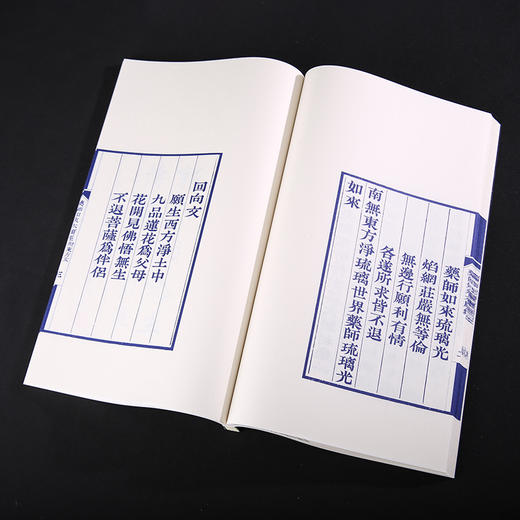 藥師如來琉璃光
焰網莊嚴無等倫
無邊行願利有情
各遂所求皆不退
南無東方淨琉璃世界藥師琉璃光
如來
回向文
願生西方淨土中
九品蓮花爲父母
花開見佛悟無生
不退菩薩爲伴侶